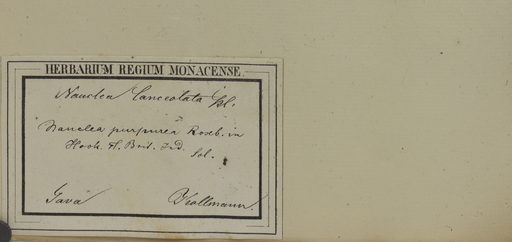 HERBARIUM REGIUM MONACENSE.
Nauclea lanceolata Bl.
Nauclea purpurea Roxb. in
Hook. Fl. Brit. Ind.
Java Zollmann.